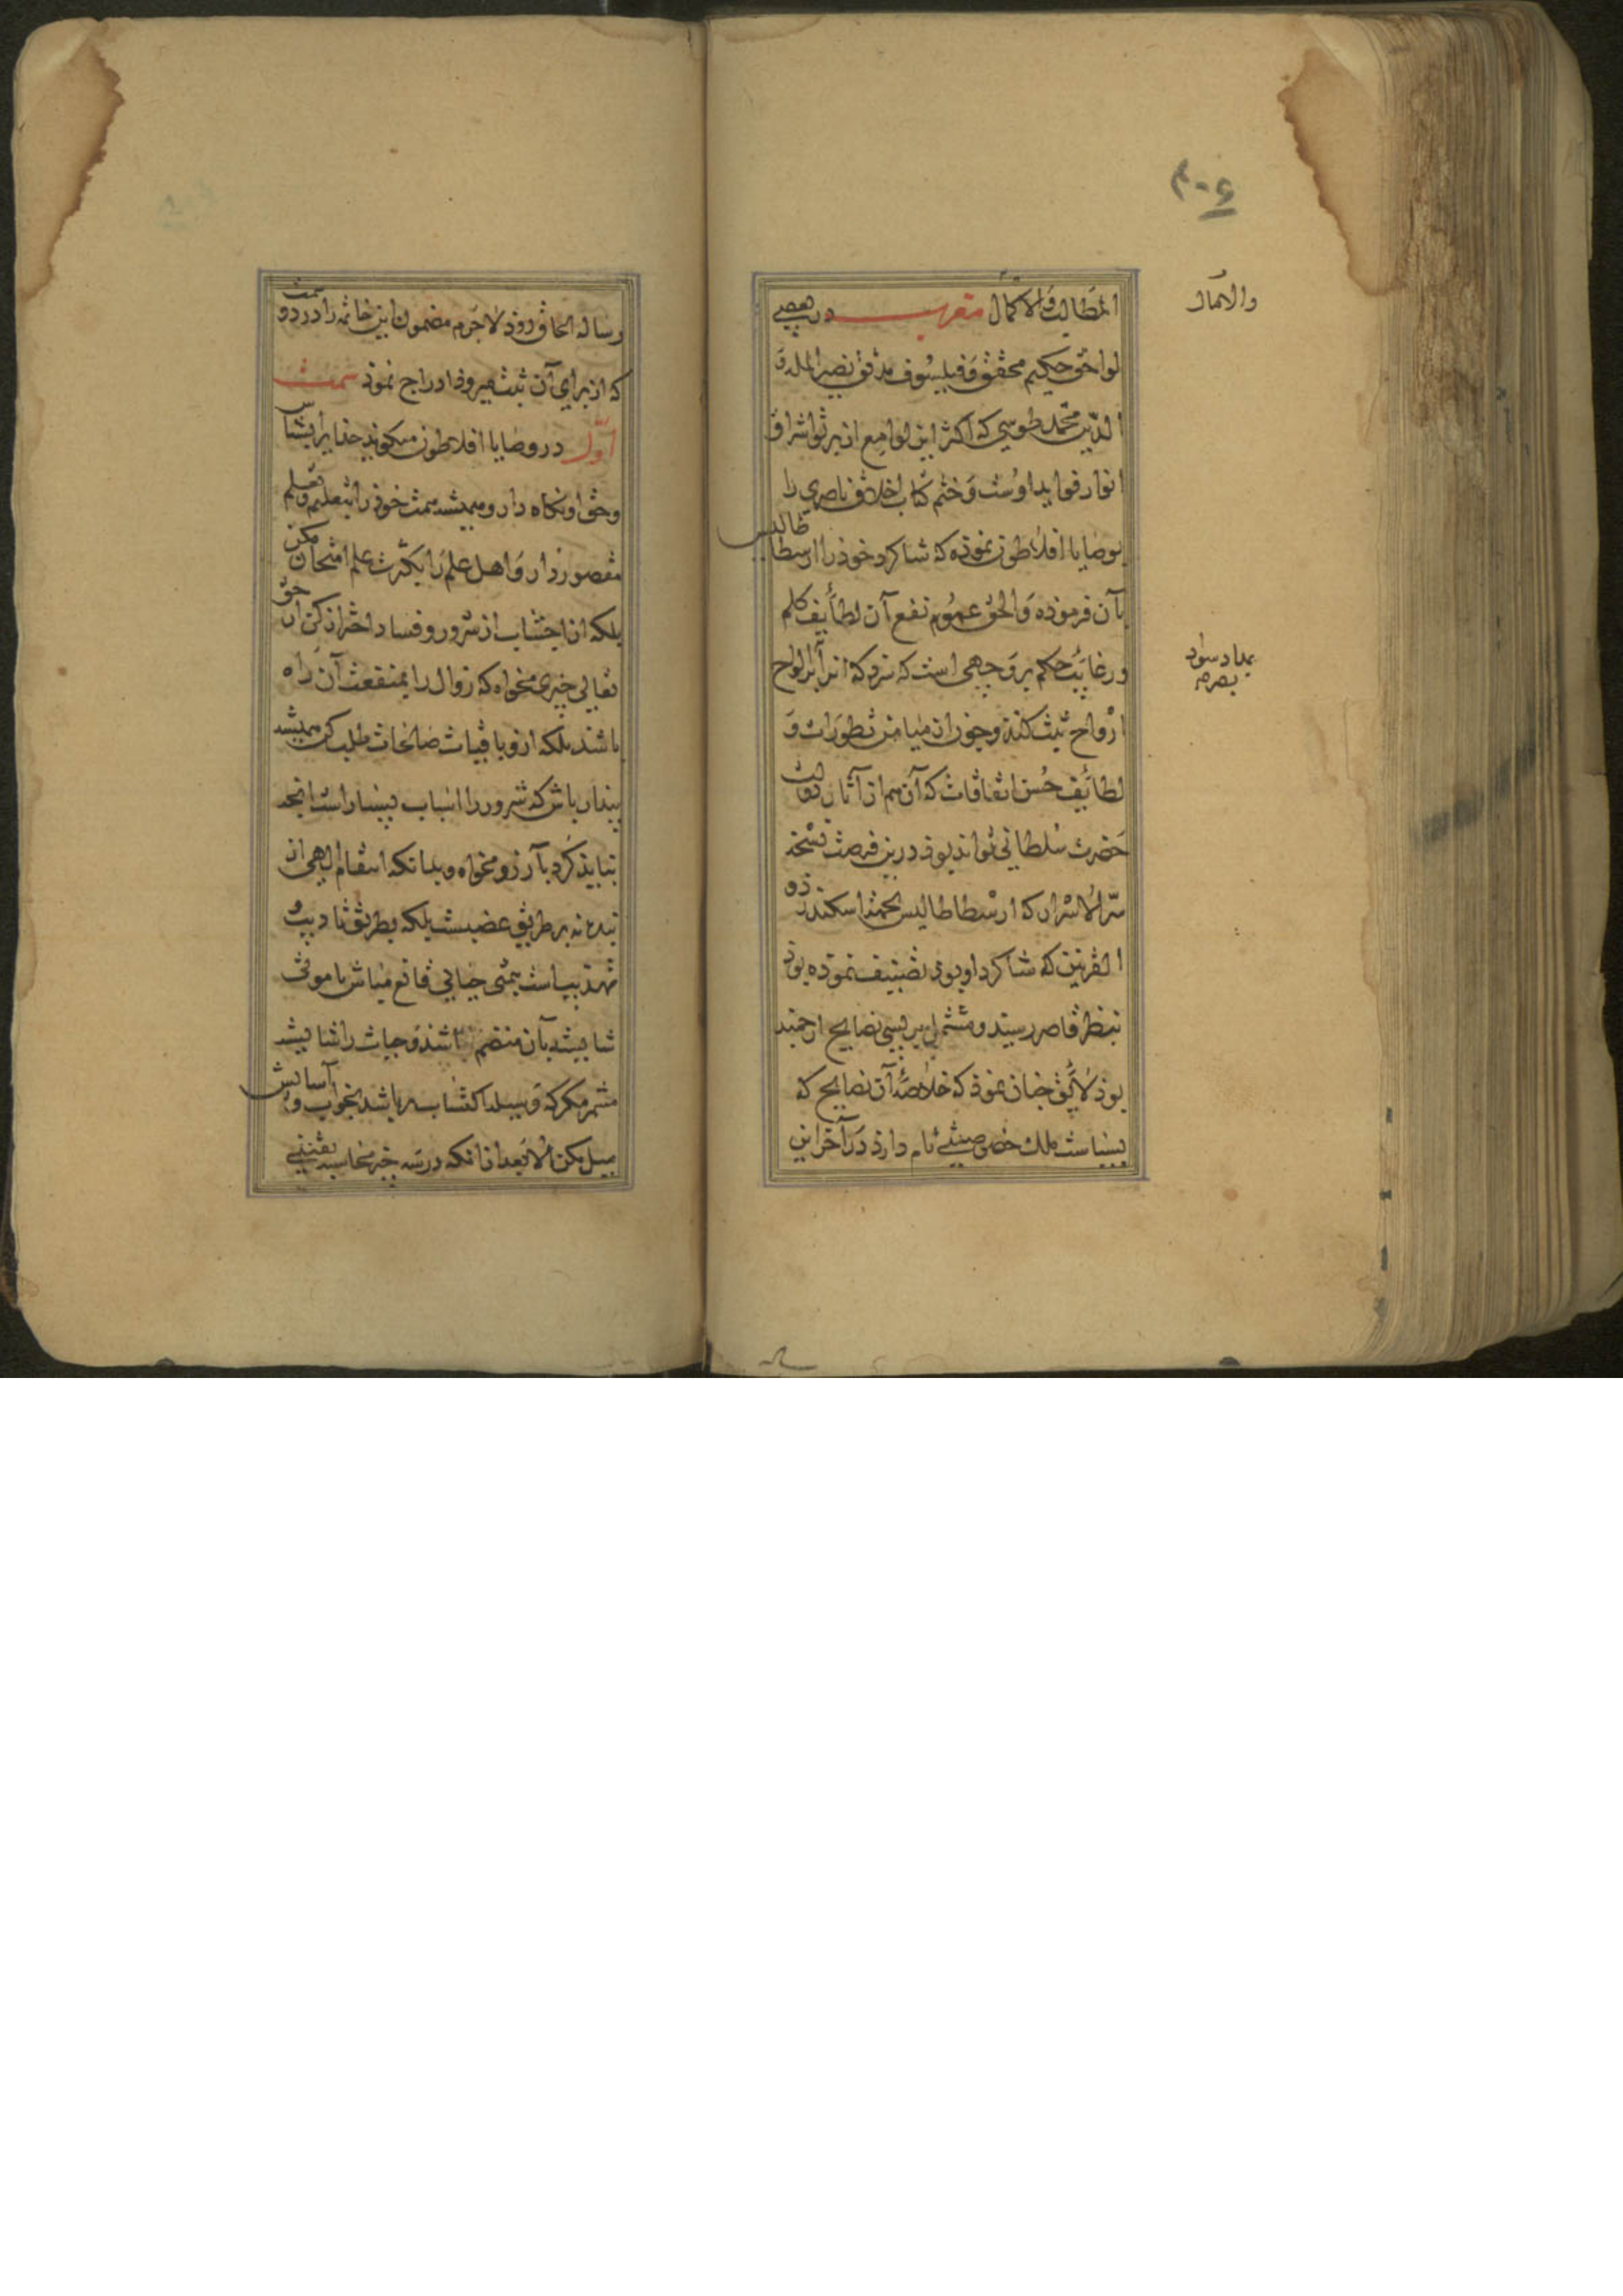 ۴۰۶
المطالب والاکمال مقرب در بعضی
والامال
لواحق حکیم محقق و فیلسوف مدقق نصیر الملة و
الدین محمد طوسی که اکثر این لوامع از پرتو اشراق
انوار فواید اوست و ختم کتاب اخلاق ناصری را
بوصایا افلاطون نموذه که شاکرد خوذ را ارسطاطالیس
بآن فرموذه و الحق عموم نفع آن لطایف کلم
و رغایب حکم بر وجهی است که سزد که انرا بر الواح
بمداد سواد
بصره
ارواح ثبت کنند و چون از میامن تطورات و
لطائف حسن اتفاقات که آن هم از آثار دولت
حضرت سلطانی تواند بوذ درین فرصت نسخه
سر الاسرار که ارسطاطالیس بجهت اسکندر ذو
القرنین که شاکرد او بوذ تصنیف نموده بوذ
بنظر قاصر رسید و مشتمل بر بسی نصایح ارجمند
بوذ لایق چنان نموذ که خلاصه آن نصایح که
بسیاست ملک خصوصیتی تام دارذ در آخر این
رساله
رساله الحاق روذ لاجرم مضمون این خاتمه را در دو سمت
که از برای آن ثبت میروذ ادراج نموذ سمت
اول در وصایا افلاطون میکوید خدایرا بشناس
و حق او نکاه دار و همیشه همت خوذ را بتعلیم و تعلم
مقصور دار و اهل علم را بکثرت علم امتحان مکن
بلکه از اجتناب از شرور و فساد احتراز کن از حق
تعالی چیزی مخواه که زوال را بمنفعت آن راه
باشد بلکه ازو باقیات صالحات طلب کن همیشه
بیدار باش که شرور را اسباب بسیار است انچه
نباید کرد بآرزو مخواه و بدانکه انتقام الهی از
بنده نه بر طریق غضبست بلکه بطریق تادیب و
تهذیب است بتمنی حیاتی قانع مباش با موتی
شایسته بآن منضم باشذ و حیات را شایسته
مشمر مکر که وسیله اکتساب بر باشد بخواب و آسایش
میل مکن الا بعد از انکه در سه چیز محاسبه بنفس